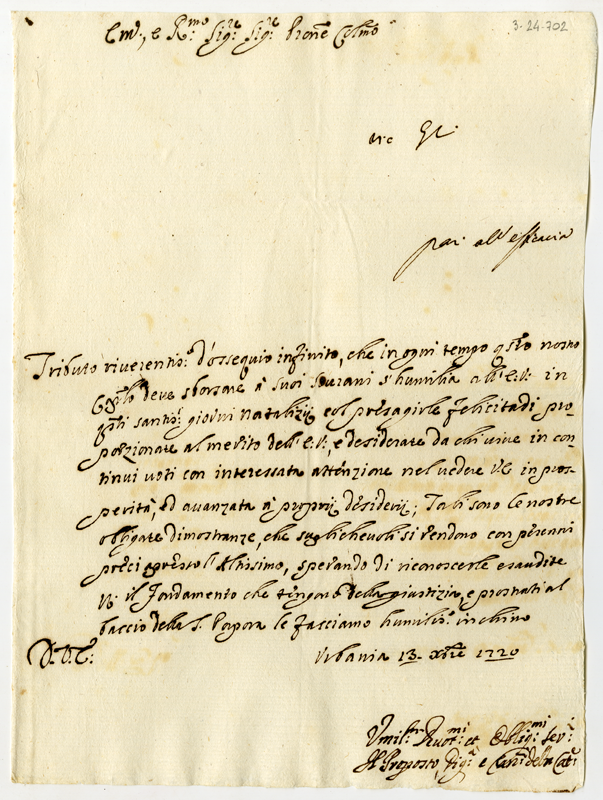 3-24-702
Em.o, e R.mo Sig.re Sig.re Prone Colmo
par all'efficacia
Tributo riverentis.o d'ossequio infinito, che in ogni tempo qsto nostro
Caplo deve sborsare à suoi sourani s'humilia all'E.V. in
qsti santis.i giorni natalizij col presagirle felicità di pro-
porzionare al merito dell'E.V., e desiderare da chi vive in con-
tinui voti con interessata attenzione nel vedere V.E. in pros-
perità, ed avanzata à proprij desiderij; Tali sono le nostre
obligate dimostranze, che supplichevoli si rendono con
preci apresso l'Altissimo, sperando di riconoscerle esaudite
il fondamento che tengono della giustizia, e prostrati al
baccio della S. Porpora le facciamo humilis.o inchino
D. V. E.
Urbania 13. Xbre 1720
Umil.mi Devot.mi et Oblig.mi Ser.i
Il Proposto Dig.à e Can.ci della Cat.